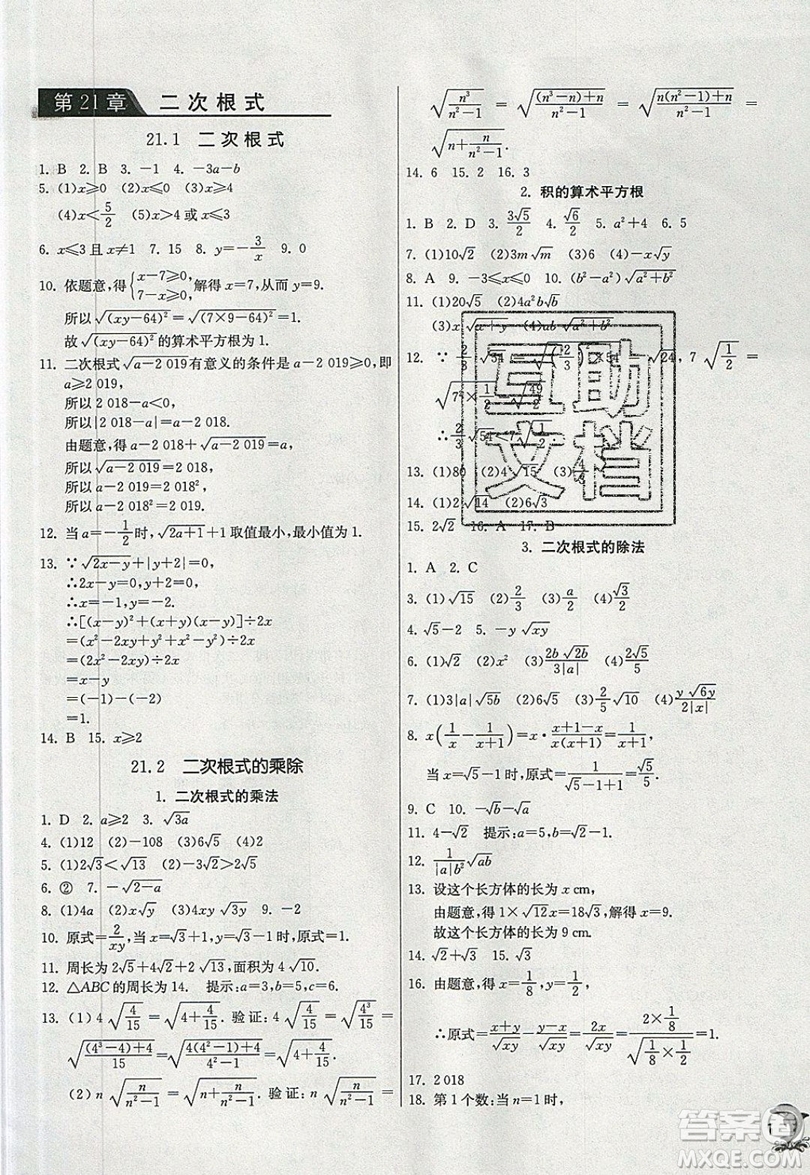 第21章 二次根式
21.1 二次根式
1. B 2. B 3. −1 4. −3a−b
5. (1)x⩾0 (2)x⩽0 (3)x⩾0
(4)x<5/2 (5)x>−3/4 (6)x<0
6. x⩽3 且 x≠1 7. 15 8. y=−3/x 9. 0
10. 依题意,得{x−7⩾0, 7−x⩾0,解得 x=7,从而 y=9.
所以√(xy−64)²=√(7×9−64)²=1.
故√(xy−64)²的算术平方根为 1.
11. 二次根式√(a−2 019)有意义的条件是 a−2 019⩾0,即
a⩾2 019.
所以 2 018−a<0.
所以|2 018−a|=a−2 018.
由题意,得 a−2 018+√(a−2 019)=a,
所以√(a−2 019)=2 018,
所以 a−2 019=2 018²,
所以 a−2 018²=2 019.
12. 当 a=−1/2时,√(2a+1)+1取值最小,最小值为 1.
13. ∵√(2x−y)+|y+2|=0,
∴2x−y=0,y+2=0,
∴x=−1,y=−2,
∴[(x−y)²+(x+y)(x−y)]÷2x
=(x²−2xy+y²+x²−y²)÷2x
=(2x²−2xy)÷2x
=x−y
=(−1)−(−2)
=1.
14. B 15. x⩾2
21.2 二次根式的乘除
1. 二次根式的乘法
1. D 2. a⩾2 3. √3a
4. (1)12 (2)−108 (3)6√5 (4)2
5. (1)2√3<√13 (2)−4√2>−√33
6. ② 7. −√(2−a)
8. (1)4a (2)x√y (3)6√x (4)2xy√3y 9. −2
10. 原式=2/xy,当 x=√3+1,y=√3−1 时,原式=1.
11. 周长为 2√5+4√2+2√13,面积为 4√10.
12. △ABC的周长为 14. 提示:a=3,b=5,c=6.
13. (1) 4√(4/15)=√(4+4/15). 验证:4√(4/15)=√(4³/15)=
√((4³−4)+4/15)=√(4(4²−1)+4/4²−1)=√(4+4/15).
(2) n√(n/n²−1)=√(n+n/n²−1). 验证:n√(n/n²−1)=
√(n³/n²−1)=√((n³−n)+n/n²−1)=√(n(n²−1)+n/n²−1)=
√(n+n/n²−1).
14. 6 15. 2 16. 3
2. 积的算术平方根
1. B 2. D 3. 3√5/2 4. √6/2 5. a²+4 6. 5
7. (1)10√2 (2)3m√m (3)6 (4)−x√y
8. A 9. −3⩽x⩽0 10. (b²−a²)√(a²+b²)
11. (1)20√5 (2)4a²b√b
12. ∵
13. (1)80
14. (1)2√14 (2)6√3
15. 2√2 16. A 17. B
3. 二次根式的除法
1. A 2. C
3. (1)√15 (2)2/3 (3)a/2 (4)√2/3
4. √5−2 5. −y√xy
6. (1)√2 (2)x² (3)2b√2b/3|a| (4)2√5/5
7. (1)3|a|√5b (2)6√5 (3)2/5√10 (4)y√6y/2|x|
8. x(1/x−1/x+1)=x·x+1−x/x(x+1)=1/x+1,
当 x=√5−1 时,原式=1/√5−1+1=√5/5.
9. C 10. −√b−√a
11. 4−√2 提示:a=5,b=1−√2.
12. 1/|a|b²√ab
13. 设这个长方体的长为 x cm,
由题意,得 1×√12x=18√3,解得 x=9.
故这个长方体的长为 9 cm.
14. √2+√3 15. √3
16. 由题意,得 x=1/8,y=1/2,
∴原式=x+y/√xy−y−x/√xy=2x/√xy=2×1/8/√(1/8×1/2)=1.
17. 2 018
18. 第 1 个数:当 n=1 时,
互助
文档
答案
MXQE.COM